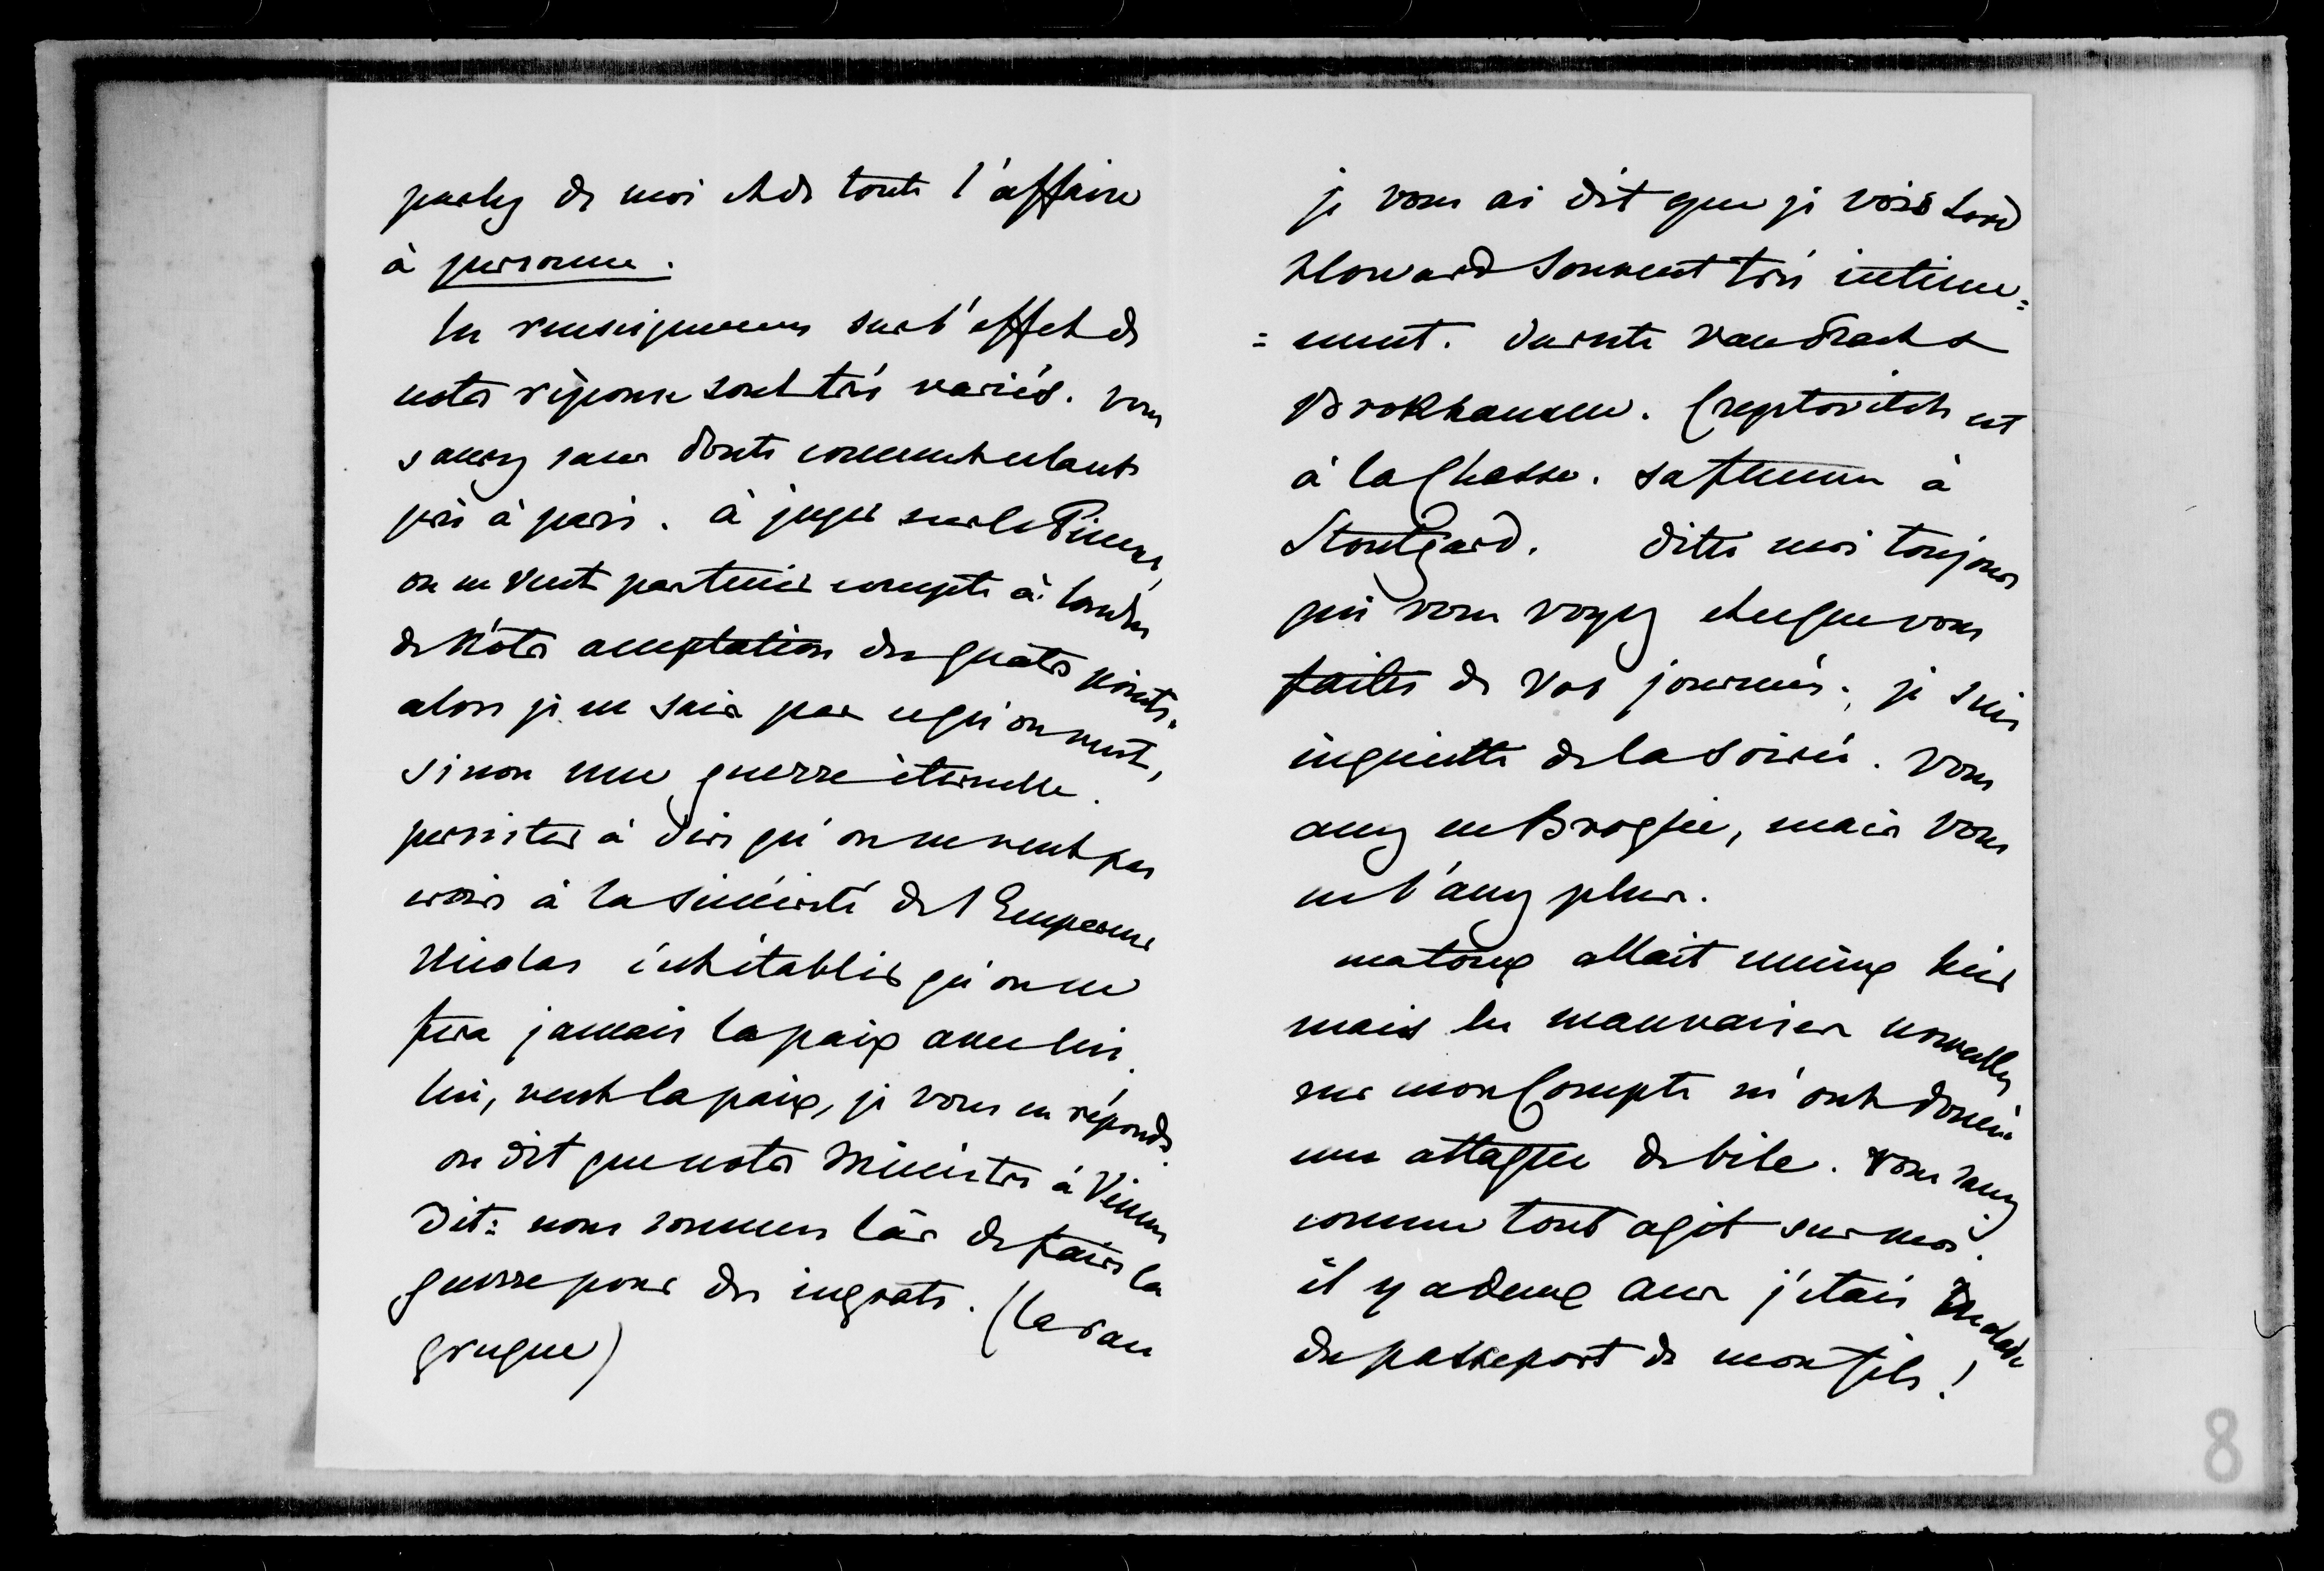 parlez de moi et de toute l'affaire
à personne.
les renseignemens sur l'effet de
notre réponse sont très variés. vous
saurez sans doute comment cela est
pris à paris. à juger sur le Times,
on ne veut pas tenir compte à Londres
de nôtre acceptation des quatre points.
alors je ne sais pas ce qu'on veut,
sinon une guerre éternelle.
persister à dire qu'on ne veut pas
croire à la sincérité de l'Empereur
Nicolas c'est établir qu'on ne
fera jamais la paix avec lui.
lui, veut la paix, je vous en réponds.
on dit que notre Ministre à Vienne
dit: nous sommes làs de faire la
guerre pour des ingrats. (la race
grecque)
je vous ai dit que je vois Lord
Howard souvent très intime=
=ment. ensuite Vandracht &
Brokhausen. Creptovitch est
à la Chasse. sa femme à
Stoutgard. dites moi toujours
qui vous voyez et ce que vous
faites de vos journées; je suis
inquiette de la soirée. vous
avez eu Broglie, mais vous
ne l'avez plus.
ma toux allait mieux hier
mais les mauvaises nouvelles
sur mon Compte m'ont donné
une attaque de bile. vous savez
comme tout agit sur moi.
il y a deux ans j'étais malade
du passeport de mon fils!
8